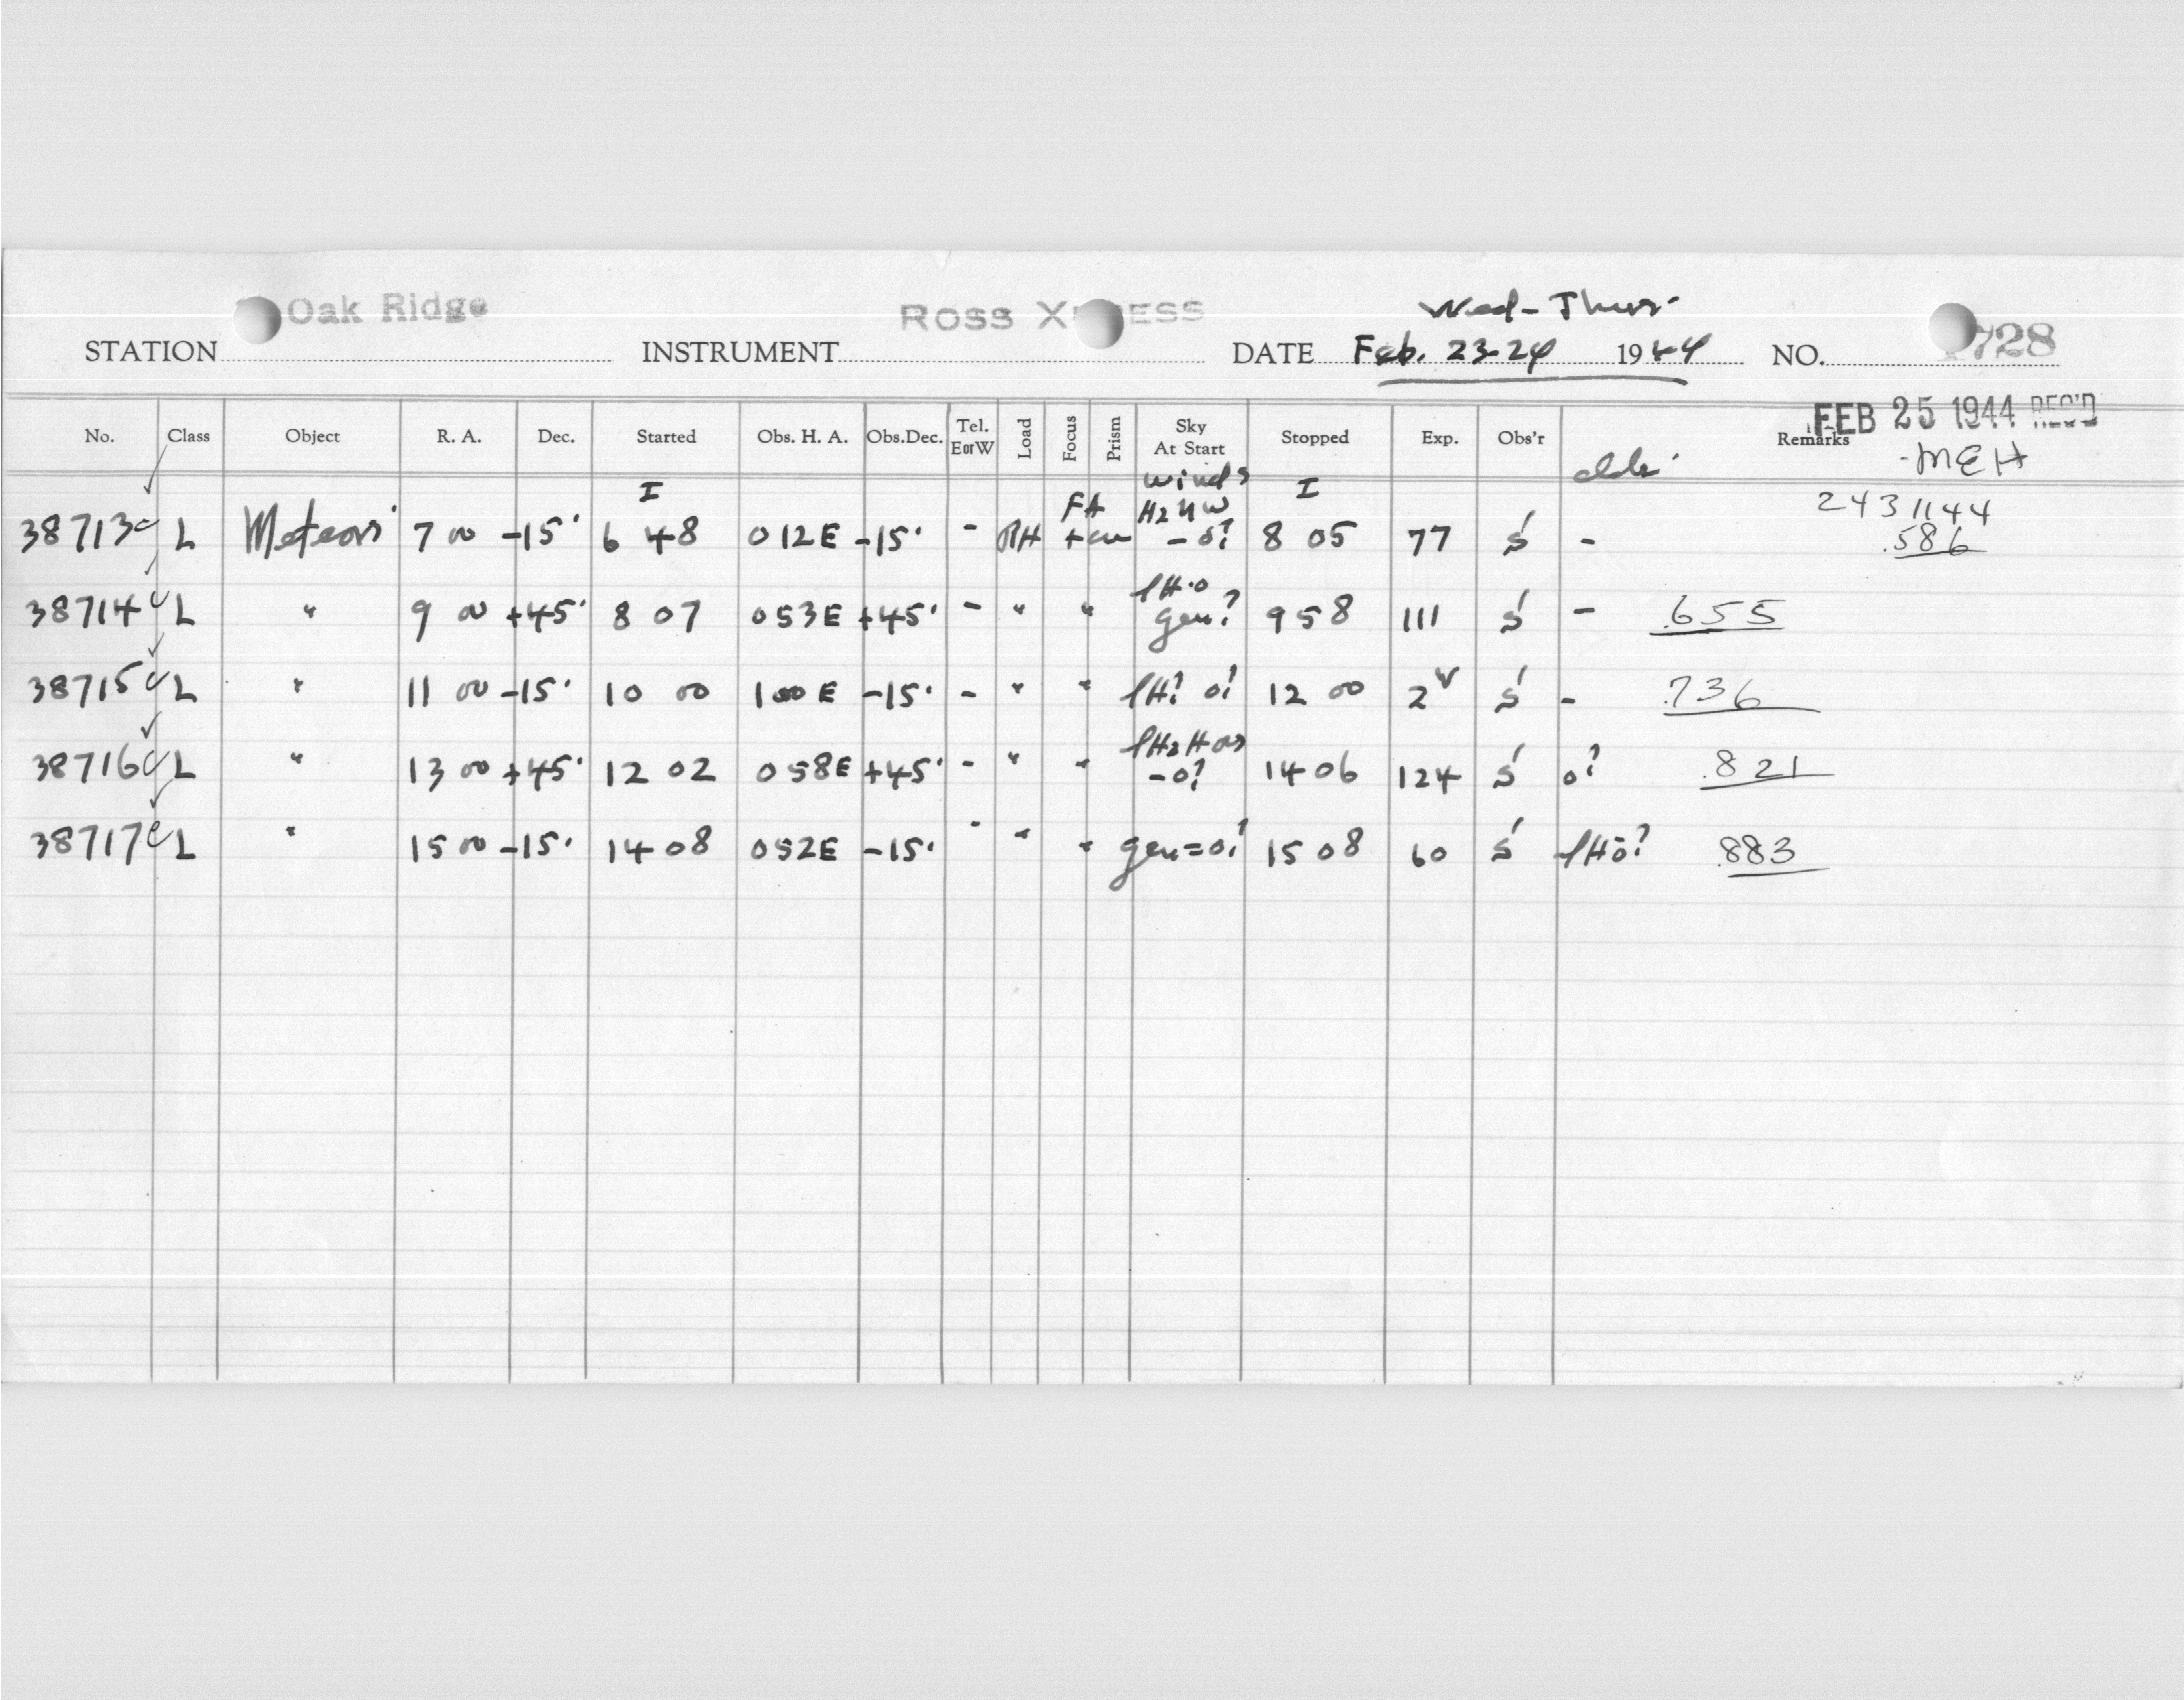 Oak Ridge Ross X ESS Wed-Thur.
STATION INSTRUMENT DATE Feb. 23-24 1944 NO. 1728
FEB 25 1944 REC'D
No. Class Object R. A. Dec. Started Obs. H. A. Obs.Dec. Tel. E or W Load Focus Prism Sky At Start Stopped Exp. Obs'r Remarks
-MEH
I winds I 2431144
38713 c L Meteors 7 00 -15° 6 48 0 12 E -15° - RH FA H2 NW - 0? 8 05 77 S - .586
38714 c L " 9 00 +45° 8 07 0 53 E +45° - " " gen? 9 58 111 S - .655
38715 c L " 11 00 -15° 10 00 1 00 E -15° - " " 0? 12 00 2 S - .736
38716 c L " 13 00 +45° 12 02 0 58 E +45° - " " -0? 14 06 124 S 0? .821
38717 c L " 15 00 -15° 14 08 0 52 E -15° - " " gen=0? 15 08 60 S .883